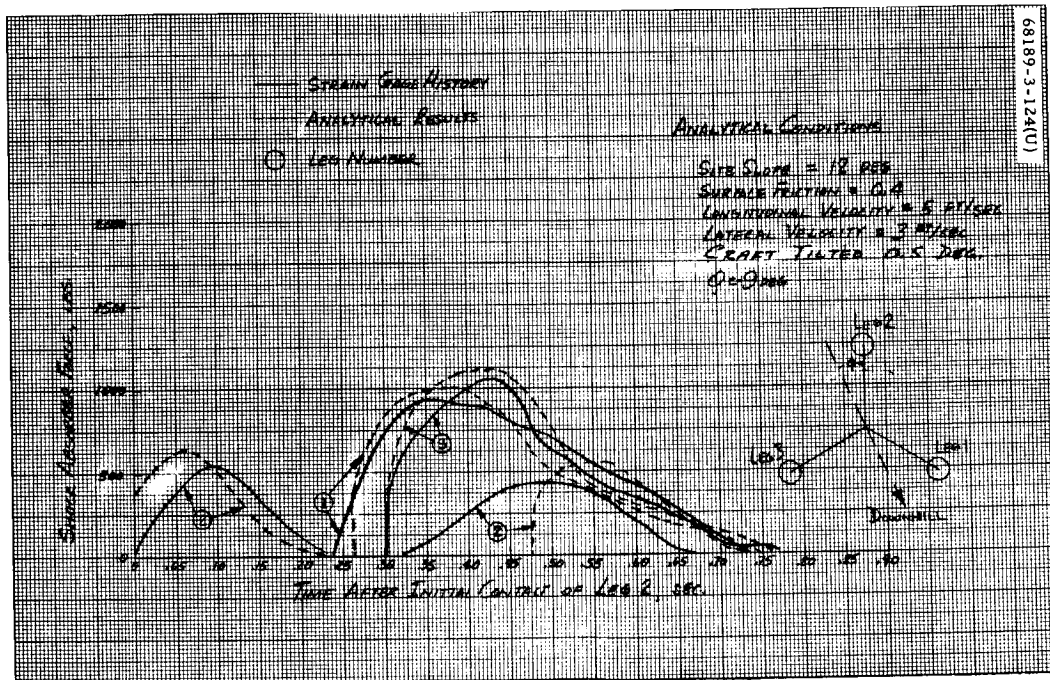 68189-3-124(U)
STRAIN GAGE HISTORY
ANALYTICAL RESULTS
LEG NUMBER
ANALYTICAL CONDITIONS
SITE SLOPE = 12 DEG
SURFACE FRICTION = 0.4
LONGITUDINAL VELOCITY = 5 FT/SEC
LATERAL VELOCITY = 3 FT/SEC
CRAFT TILTED 0.5 DEG.
SHOCK ABSORBER FORCE, LBS.
1500
1000
500
0
LEG 2
LEG 3
LEG 1
DOWNHILL
0 .05 .10 .15 .20 .25 .30 .35 .40 .45 .50 .55 .60 .65 .70 .75
TIME AFTER INITIAL CONTACT OF LEG 2, SEC.